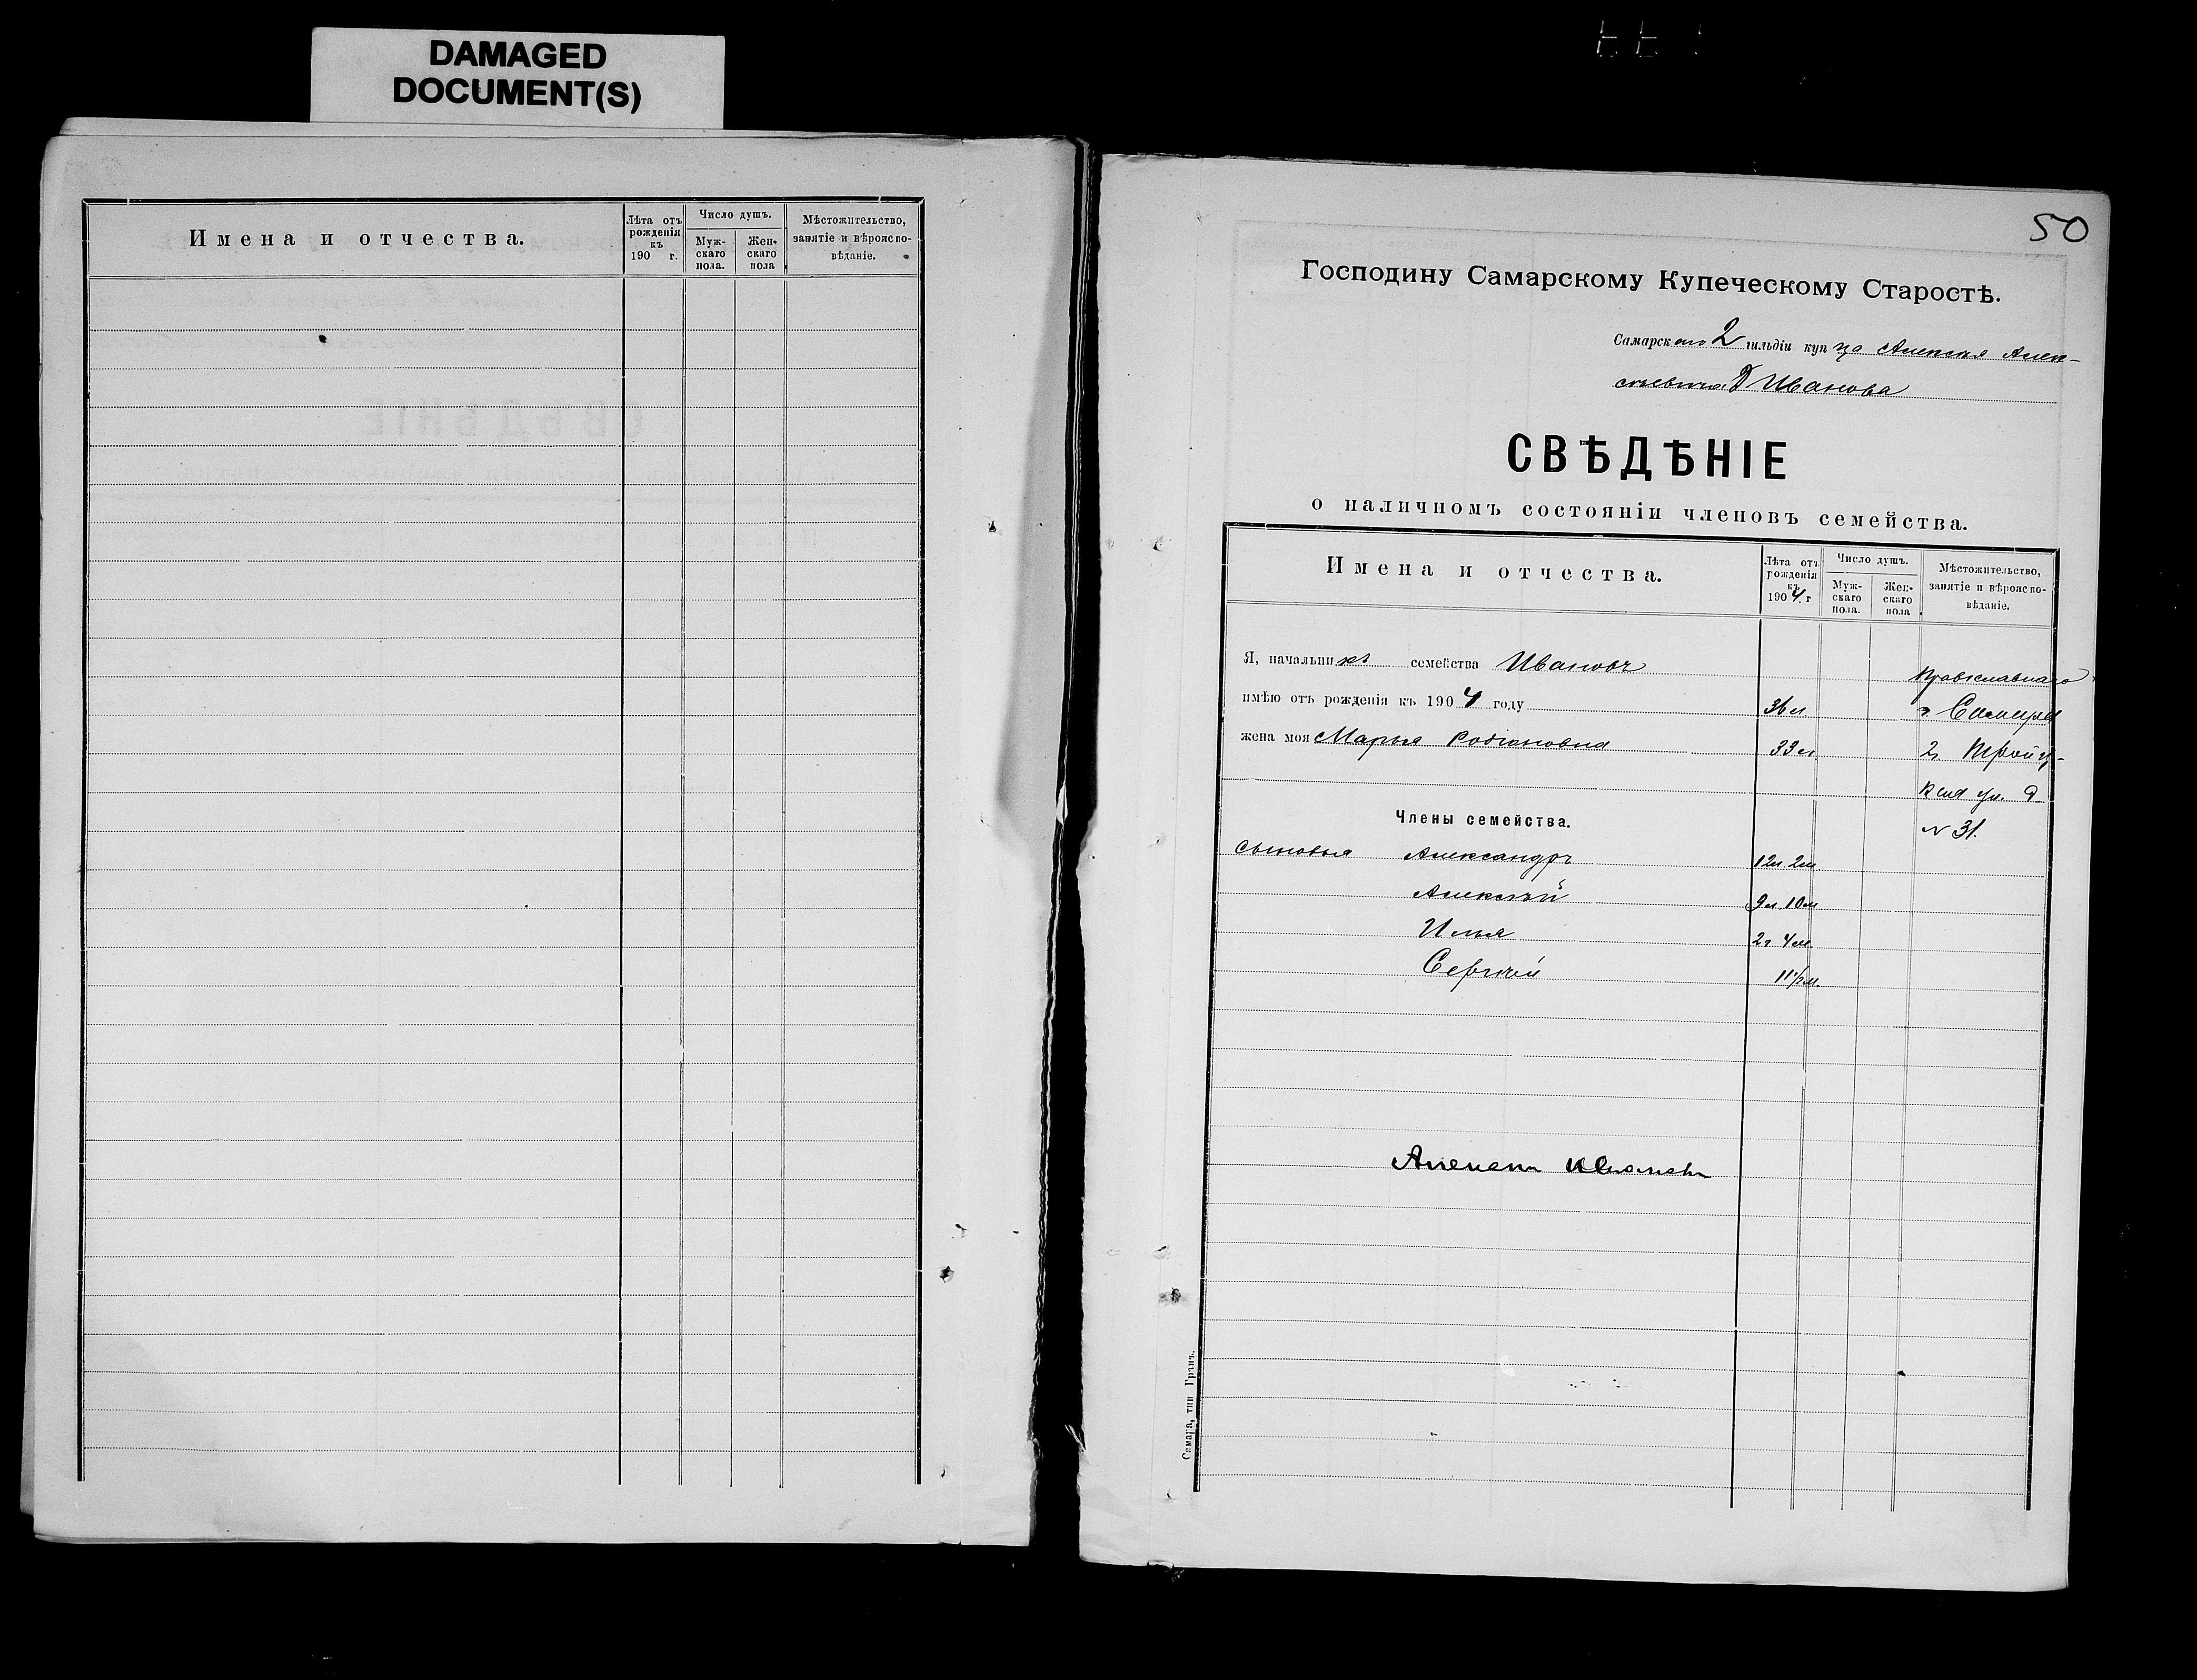 DAMAGED
DOCUMENT(S)
Имена и отчества.
Лѣта отъ рожденія къ 190 г.
Число душъ.
Мужскаго пола.
Женскаго пола
Мѣстожительство, занятіе и вѣроисповѣданіе.
50
Господину Самарскому Купеческому Старостѣ.
Самарскаго 2 гильдіи купца Алексѣя Алек-
сѣевича Иванова
СВѢДѢНІЕ
о наличномъ состояніи членовъ семейства.
Имена и отчества.
Лѣта отъ рожденія къ 1904 г
Число душъ.
Мужскаго пола.
Женскаго пола
Мѣстожительство, занятіе и вѣроисповѣданіе.
Я, начальникъ семейства Ивановъ Православнаго
имѣю отъ рожденія къ 1904 году 36 л г Самара
жена моя Марья Родіоновна 33 л. Троиц-
кая ул. д
Члены семейства. № 31.
сыновья Александръ 12 л 2 м
Алексѣй 9 л 10 м
Илья 2 г 4 м.
Сергѣй 11 1/2 м.
Алексѣй Ивановъ
Самара, тип Гранъ.